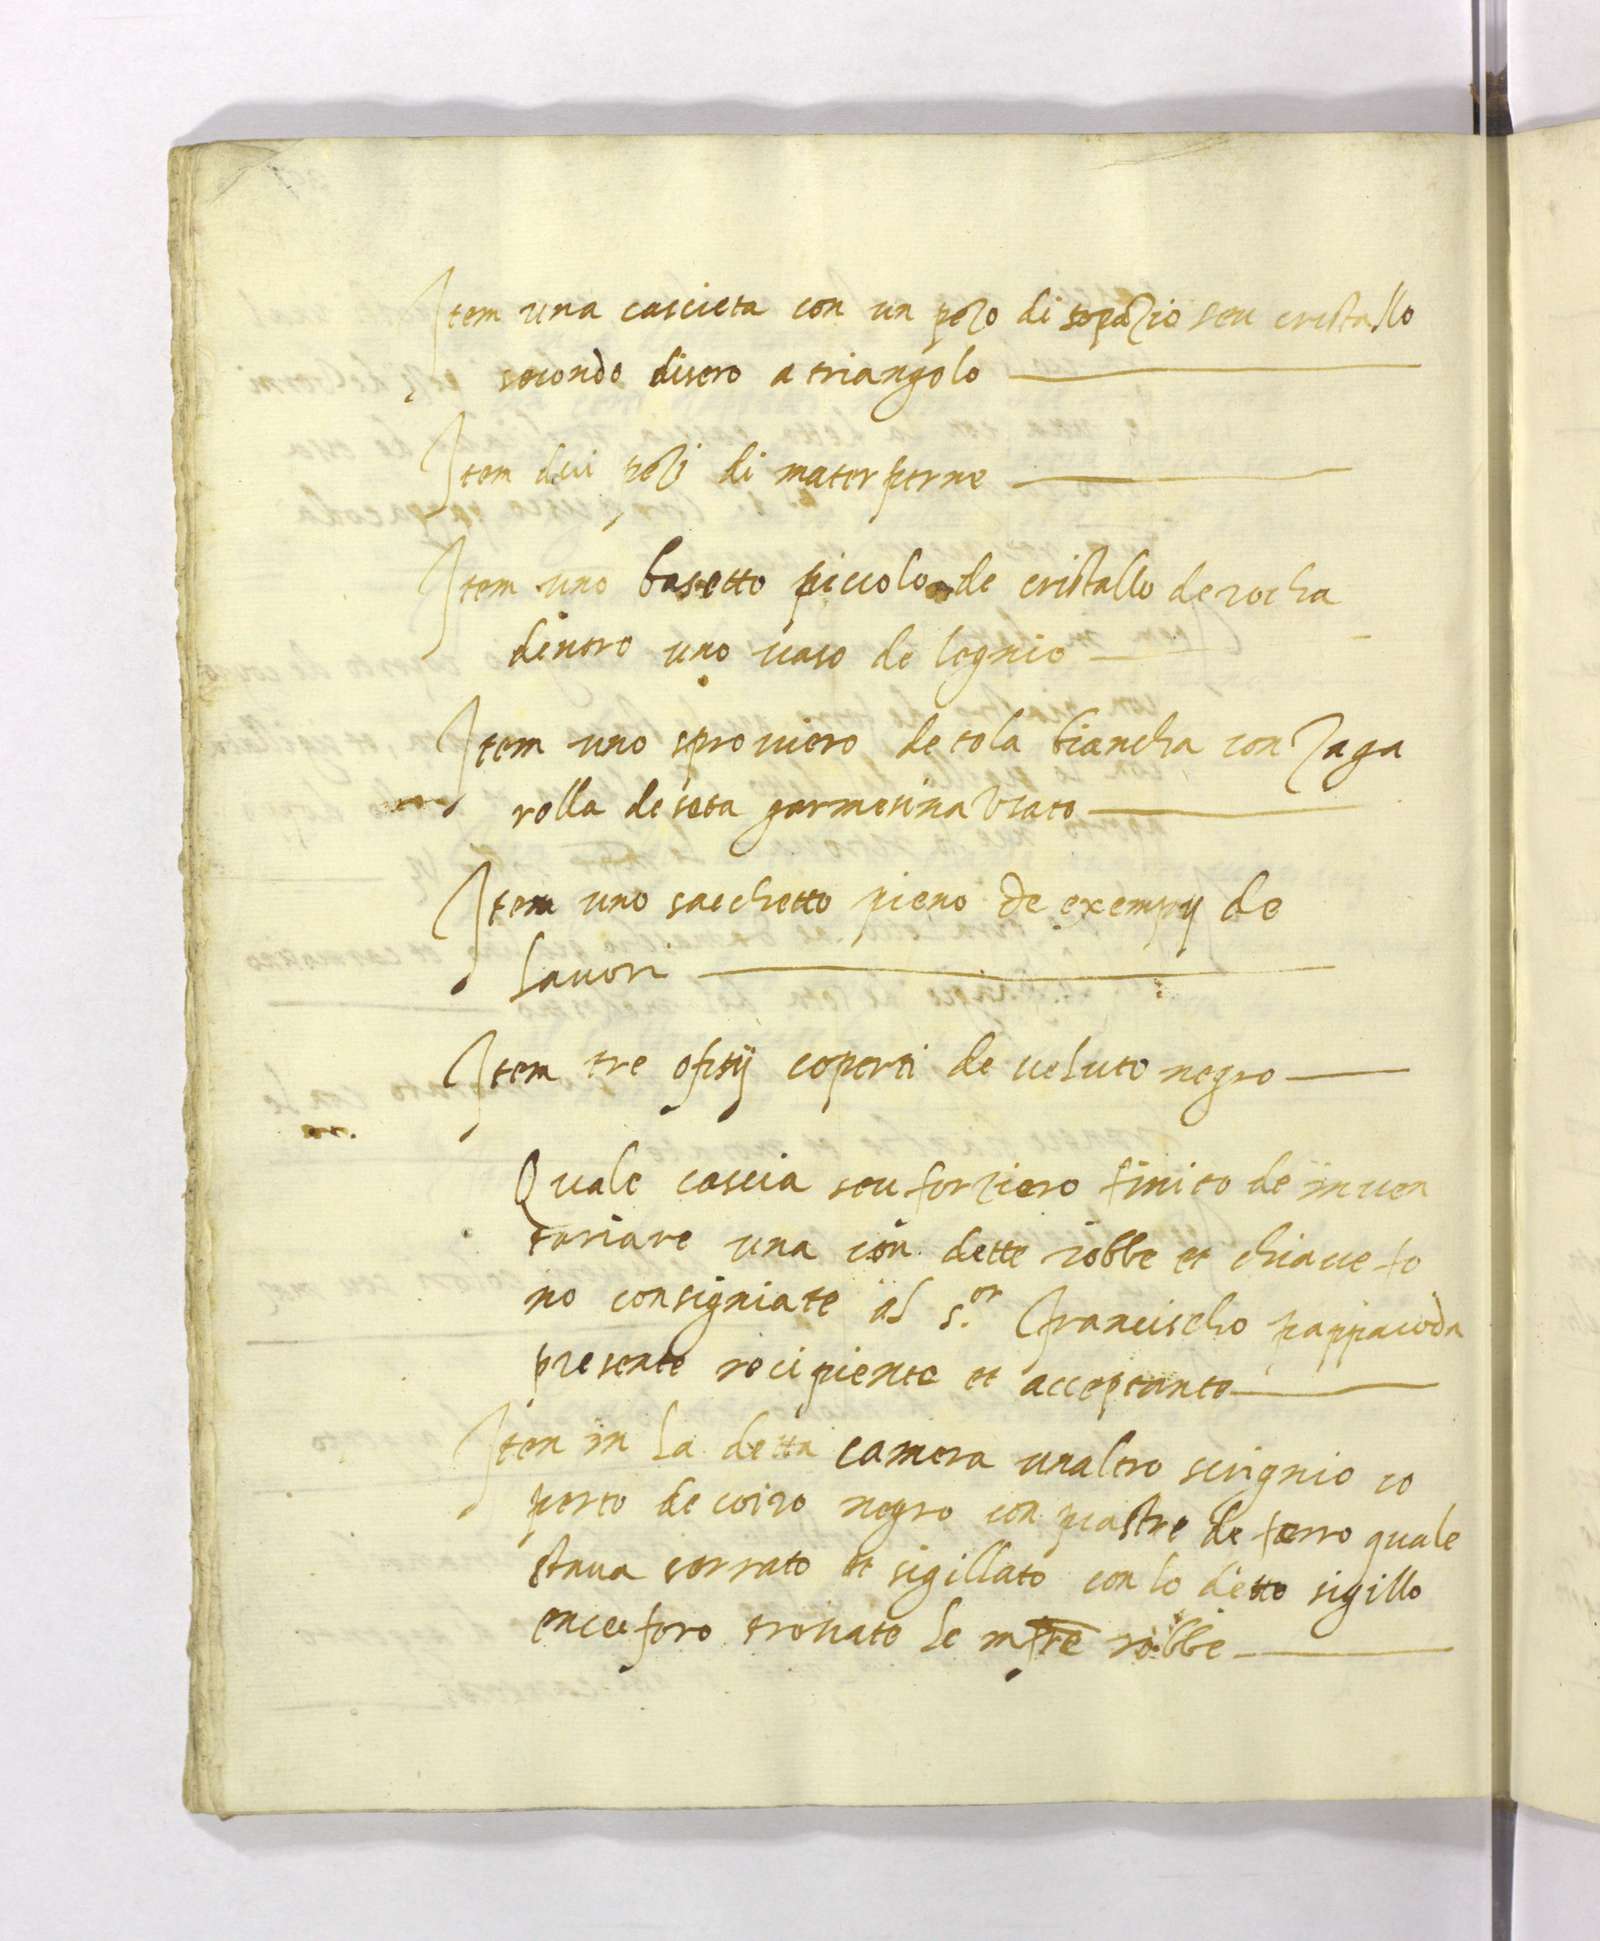 Item una cascieta con un pezo di topazio seu cristallo
secondo disero a triangolo
Item dui pezi di materperne
Item uno basetto piccolo de cristallo de rocha
dentro uno vaso de legnio
Item uno sproviero de tela biancha con zaga
rella de seta garmesina usato
Item uno sacchetto pieno de exempij de
lavori
Item tre ofitij coperti de veluto negro
Quale cascia seu forziero finito de inven
tariare una con dette robbe et chiave fo
no consigniate al s.or Francischo pappacoda
presente recipiente et acceptante
Item in la detta camera unaltro scrignio co
perto de coiro negro con piastre de ferro quale
stava serrato et sigillato con lo ditto sigillo
ence foro trovate le infre robbe